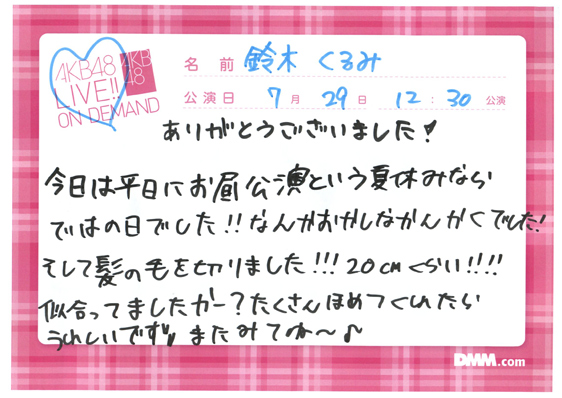 AKB48
LIVE!!
ON DEMAND
AKB
48
名前 鈴木 くるみ
公演日 7月 29日 12:30 公演
ありがとうございました!
今日は平日にお昼公演という夏休みなら
ではの日でした!!なんかおかしなかんかくでした!
そして髪の毛を切りました!!!20cmくらい!!!!
似合ってましたかー?たくさんほめてくれたら
うれしいです またみてね〜♪
DMM.com